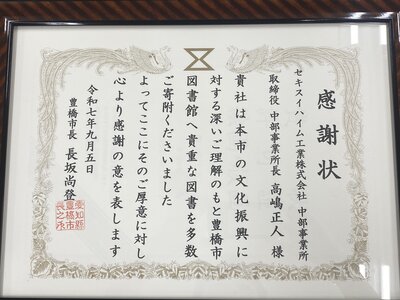 感謝状
セキスイハイム工業株式会社 中部事業所
取締役 中部事業所長 高嶋正人 様
貴社は本市の文化振興に
対する深いご理解のもと豊橋市
図書館へ貴重な図書を多数
ご寄附くださいました
よってここにそのご厚意に対し
心より感謝の意を表します
令和七年九月五日
豊橋市長 長坂尚登
愛知県
豊橋市
長之印